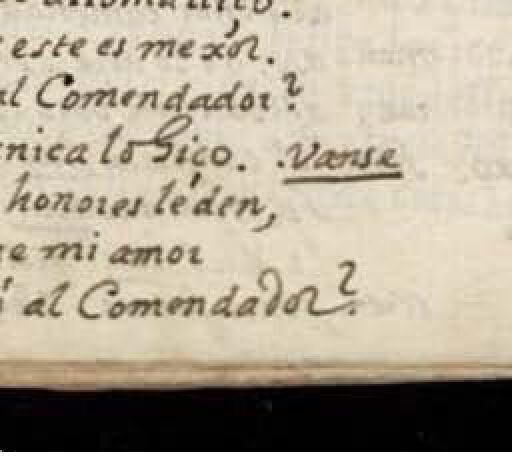 este es mexór.
al Comendador?
lo hiço. .Vanse
honores lé den,
mi amor
al Comendador?